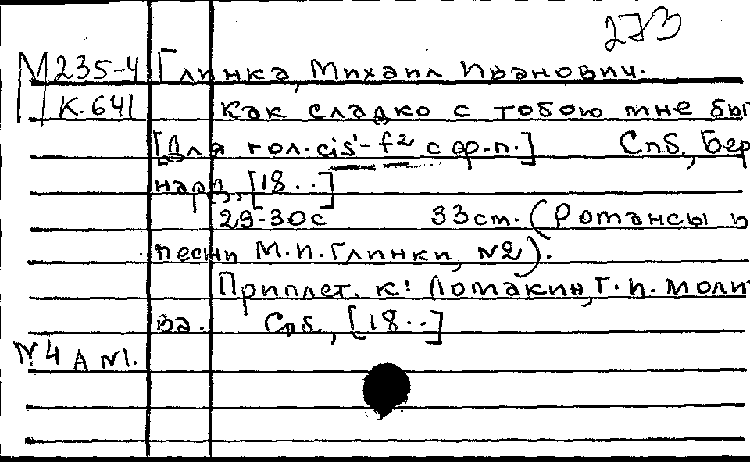 273
М235-4 Глинка, Михаил Иванович.
К-641 Как сладко с тобою мне бы
[Для гол. cis¹-f² с ф.п.] Спб., Бер
нард, [18..]
29-30с 33см. (Романсы и
песни М.И.Глинки, №2).
Приплет. к: Ломакин, Г.И. Моли
ва. Спб., [18..]
№4 А №1.